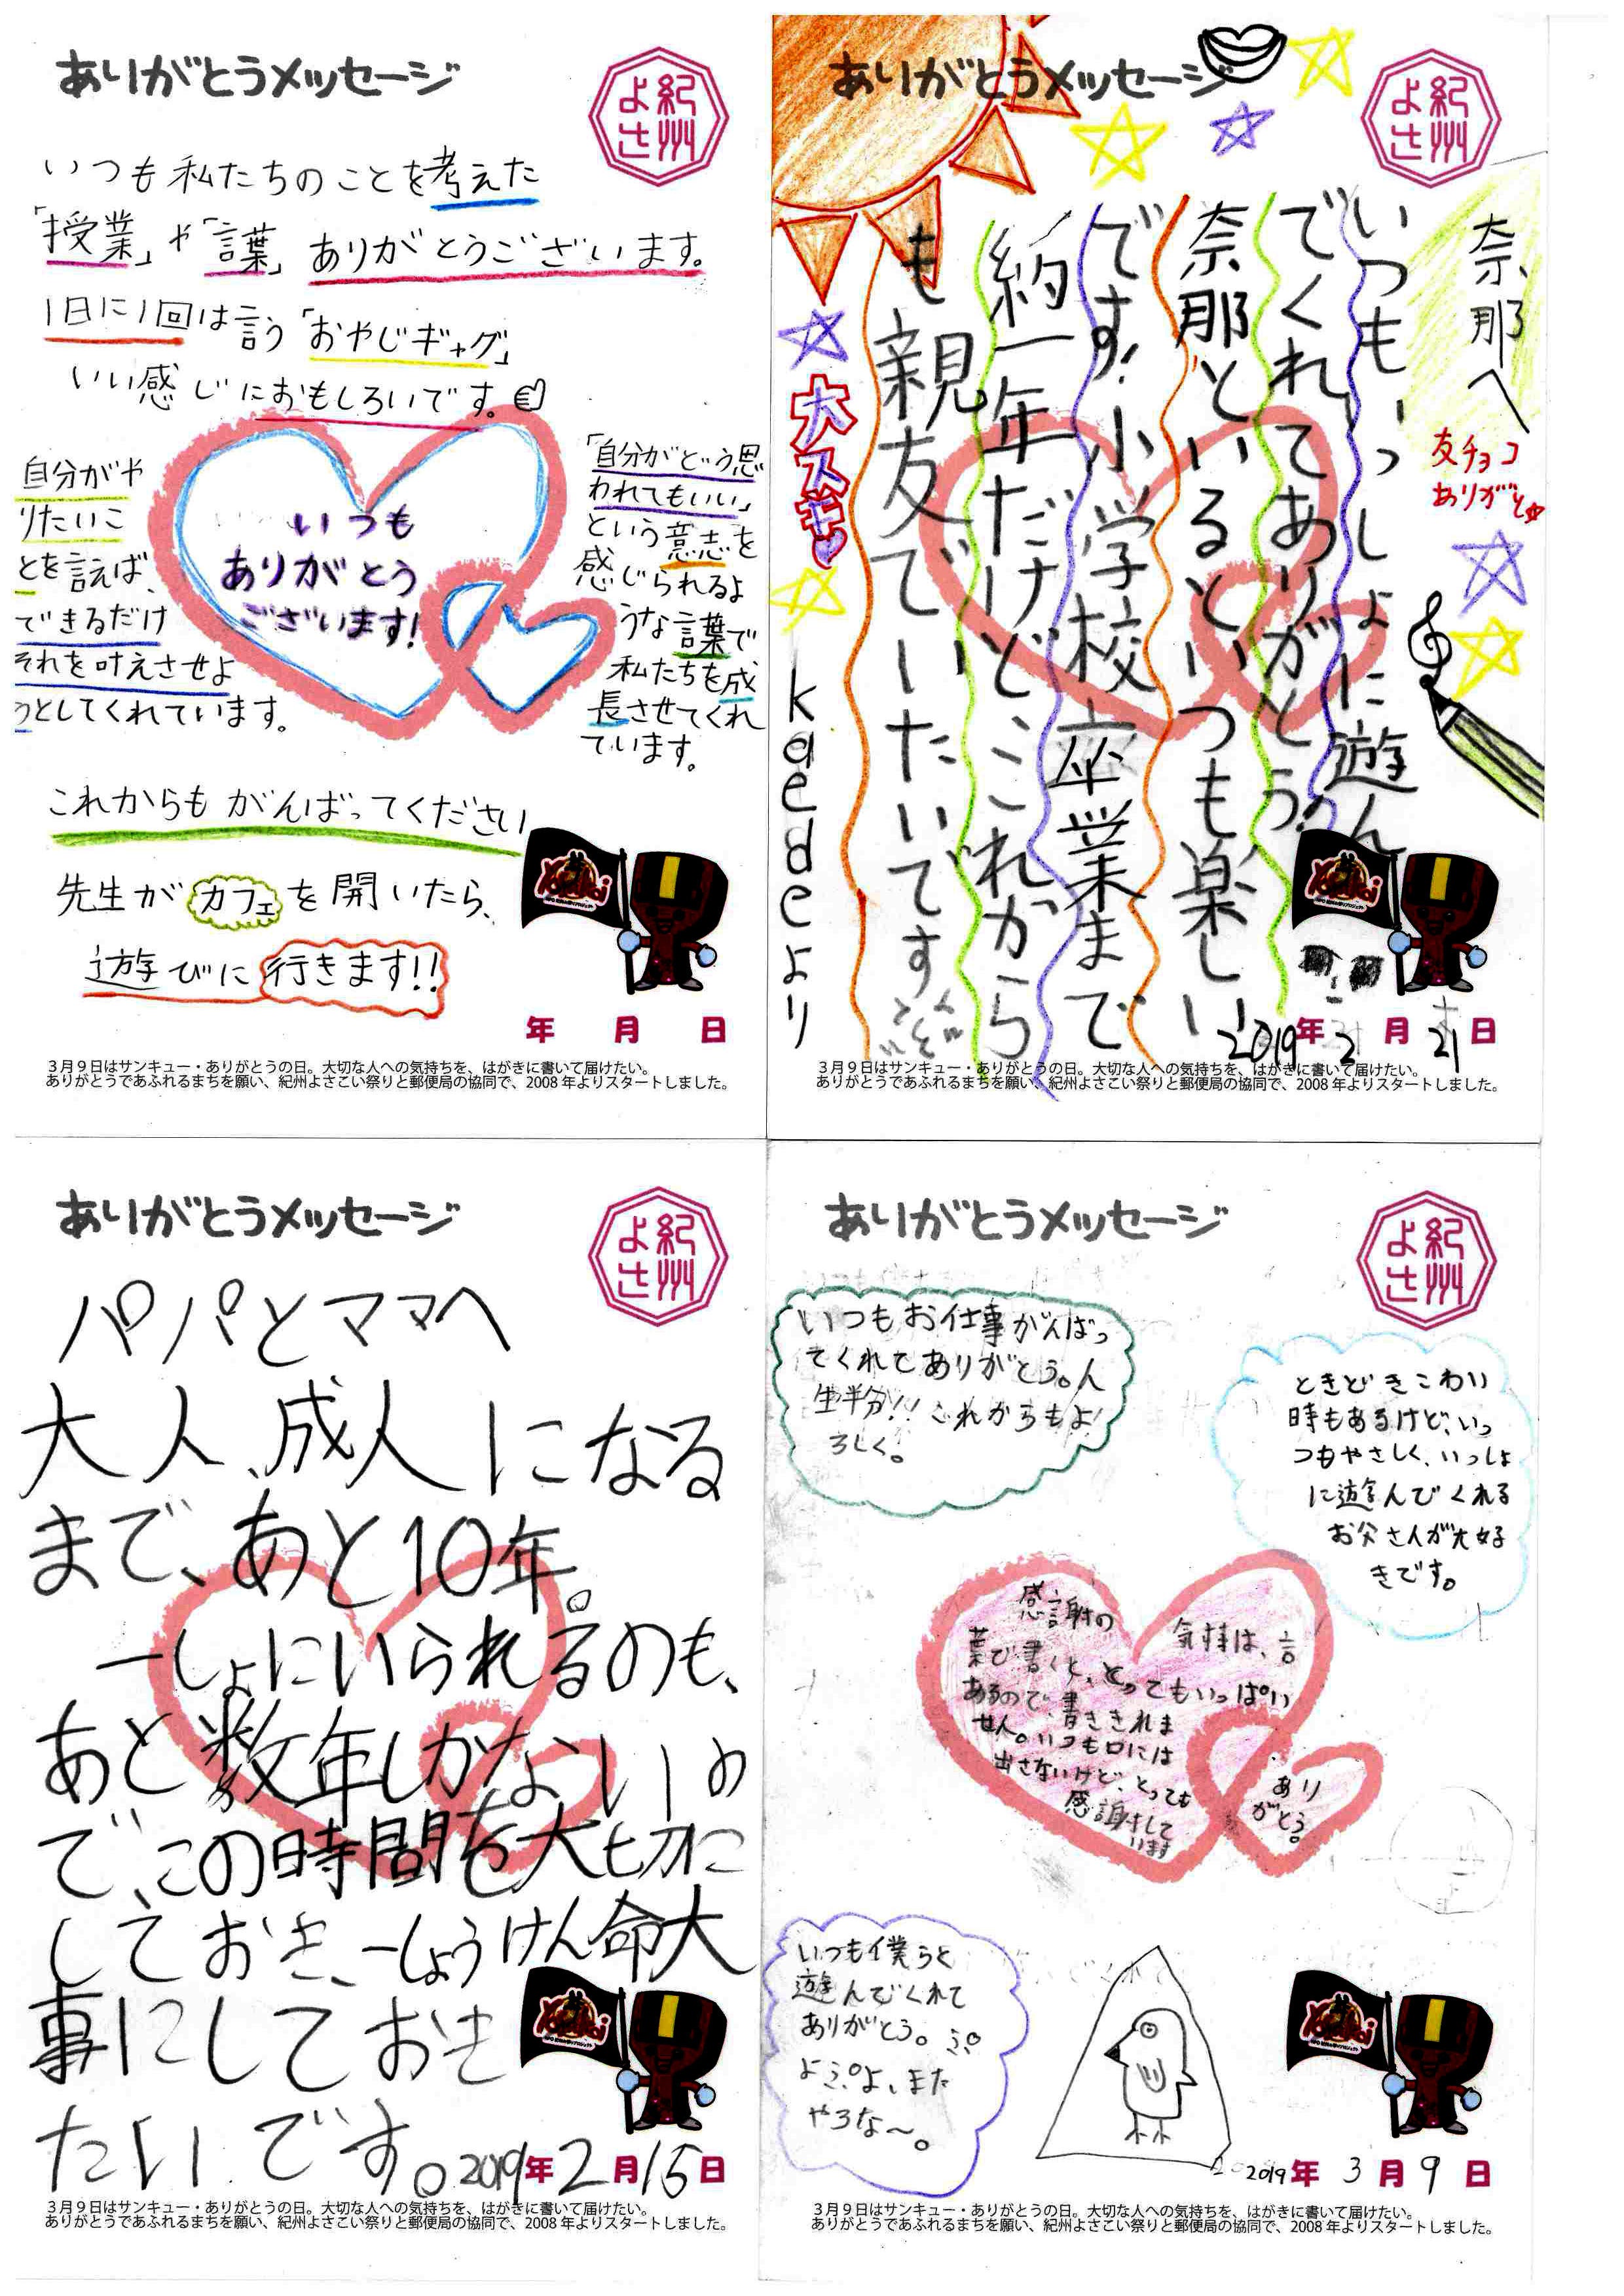 ありがとうメッセージ
紀州
よさ
いつも私たちのことを考えた
「授業」や「言葉」ありがとうございます。
1日に1回は言う「おやじギャグ」
いい感じにおもしろいです。
自分がや
りたいこ
とを言えば、
できるだけ
それを叶えさせよ
うとしてくれています。
いつも
ありがとう
ございます!
「自分がどう思
われてもいい」
という意志を
感じられるよ
うな言葉で
私たちを成
長させてくれ
ています。
これからもがんばってください
先生がカフェを開いたら、
遊びに行きます!!
年 月 日
3月9日はサンキュー・ありがとうの日。大切な人への気持ちを、はがきに書いて届けたい。
ありがとうであふれるまちを願い、紀州よさこい祭りと郵便局の協同で、2008年よりスタートしました。
ありがとうメッセージ
紀州
よさ
奈那へ
友チョコ
ありがと
いつもいっしょに遊ん
でくれてありがとう!
奈那といるといつも楽しい
です!小学校卒業まで
約一年だけどこれから
も親友でいたいです
大スキ
kaedeより
2019年2月21日
3月9日はサンキュー・ありがとうの日。大切な人への気持ちを、はがきに書いて届けたい。
ありがとうであふれるまちを願い、紀州よさこい祭りと郵便局の協同で、2008年よりスタートしました。
ありがとうメッセージ
紀州
よさ
パパとママへ
大人、成人になる
まで、あと10年。
一しょにいられるのも、
あと数年しかないの
で、この時間を大切に
しておき、一しょうけん命大
事にしておき
たいです。
2019年2月15日
3月9日はサンキュー・ありがとうの日。大切な人への気持ちを、はがきに書いて届けたい。
ありがとうであふれるまちを願い、紀州よさこい祭りと郵便局の協同で、2008年よりスタートしました。
ありがとうメッセージ
紀州
よさ
いつもお仕事がんばっ
てくれてありがとう。人
生半分!!これからもよ
ろしく。
ときどきこわい
時もあるけど、いっ
つもやさしく、いっしょ
に遊んでくれる
お父さんが大好
きです。
感謝の気持は、言
葉で書くと、とってもいっぱい
あるので、書ききれま
せん。いつも口には
出さないけど、とっても
感謝して
います
あり
がとう。
いつも僕らと
遊んでくれて
ありがとう。ぷ
よぷよ、また
やろな〜。
2019年3月9日
3月9日はサンキュー・ありがとうの日。大切な人への気持ちを、はがきに書いて届けたい。
ありがとうであふれるまちを願い、紀州よさこい祭りと郵便局の協同で、2008年よりスタートしました。